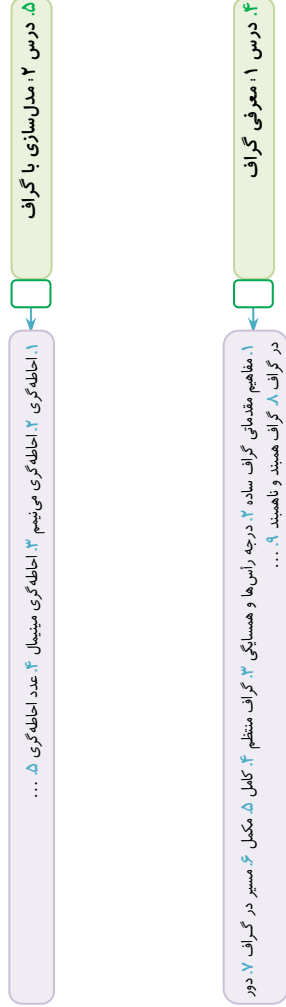 ۴. درس ۱: معرفی گراف
۱. مفاهیم مقدماتی گراف ساده ۲. درجه رأس‌ها و همسایگی ۳. گراف منتظم ۴. کامل ۵. مکمل ۶. مسیر در گراف ۷. دور
در گراف ۸. گراف همبند و ناهمبند ۹. ...
۵. درس ۲: مدل‌سازی با گراف
۱. احاطه‌گری ۲. احاطه‌گری می‌نیمم ۳. احاطه‌گری مینیمال ۴. عدد احاطه‌گری ۵. ...